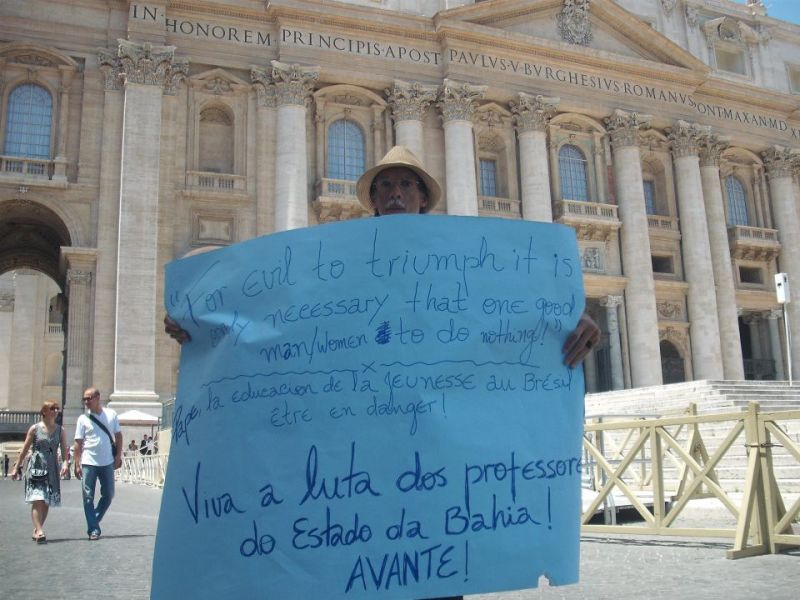 IN·HONOREM PRINCIPIS·APOST PAVLVS·V·BVRGHESIVS·ROMANVS ONT·MAX·AN·MD
"For evil to triumph it is
only necessary that one good
man/women to do nothing!"
x
Pape, la educacion de la Jeunesse au Brésil
être en danger!
Viva a luta dos professore
do Estado da Bahia!
AVANTE!